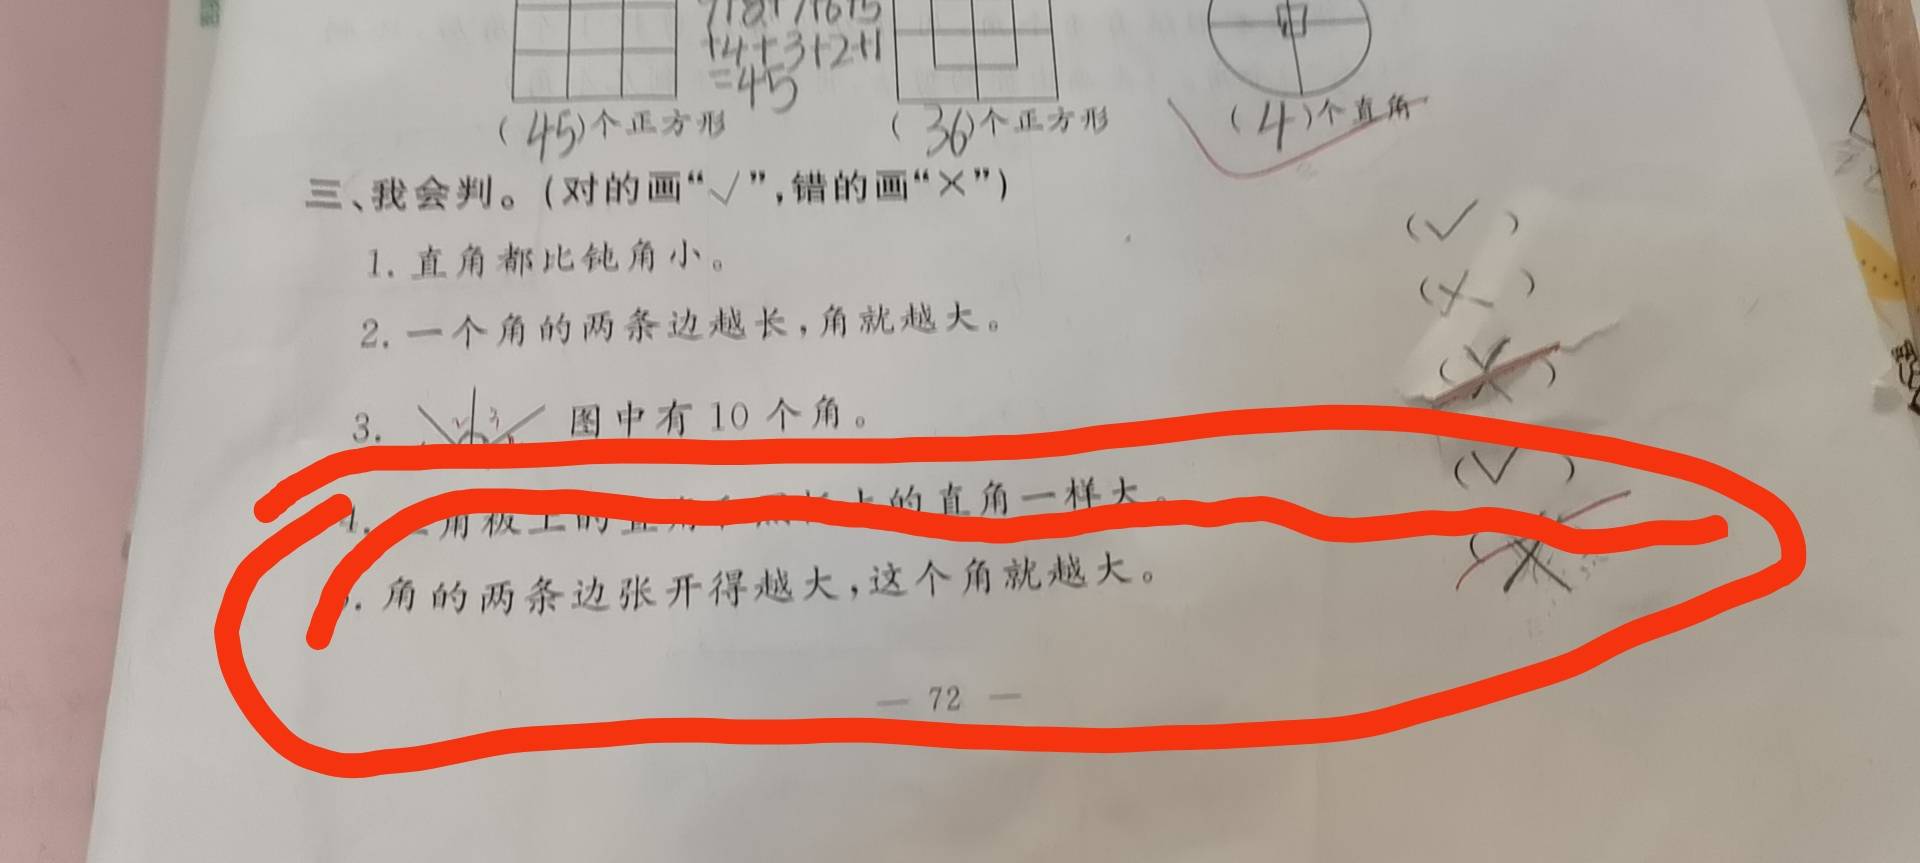 7+8+7+6+5
+4+3+2+1
=45
(45)个正方形 (36)个正方形 (4)个直角
三、我会判。(对的画“√”,错的画“×”)
1. 直角都比钝角小。 (√)
2. 一个角的两条边越长,角就越大。 (×)
3. 2 3 图中有 10 个角。 (×)
4. 角板上的直角 上的直角一样大。 (√)
. 角的两条边张开得越大,这个角就越大。 (×)
— 72 —